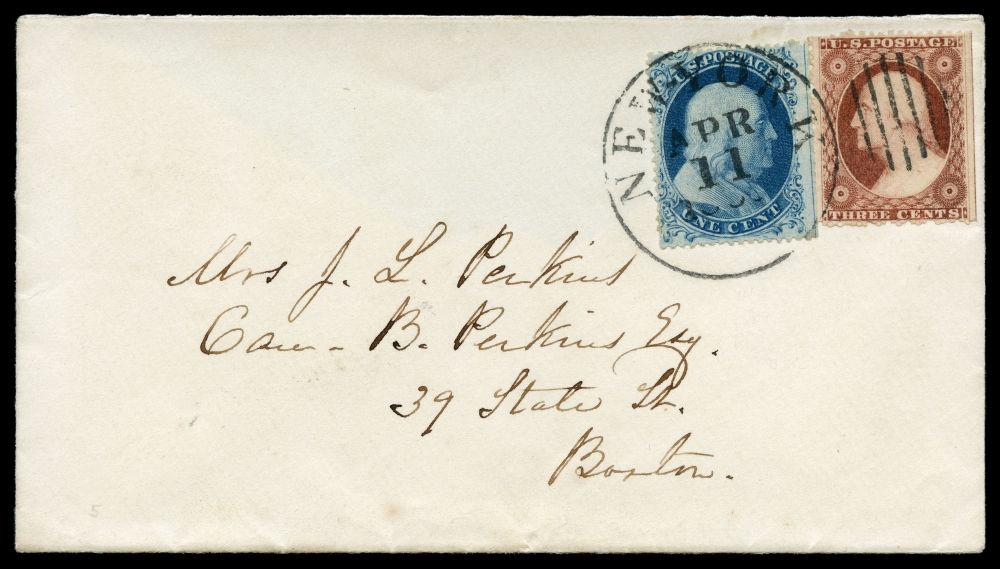 U.S. POSTAGE
ONE CENT
U.S. POSTAGE
THREE CENTS
NEW-YORK
APR
11
Mrs J. L. Perkins
Care- B. Perkins Esq.
39 State St.
Boston.
5